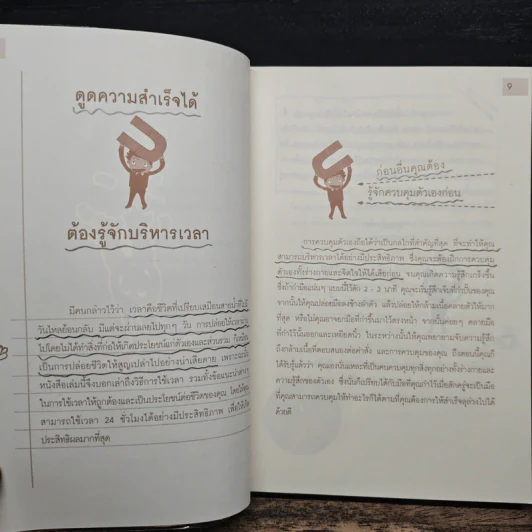 ดูดความสำเร็จได้
ต้องรู้จักบริหารเวลา
มีคนกล่าวไว้ว่า เวลาคือชีวิตที่เปรียบเสมือนสายน้ำที่ไม่มี
วันไหลย้อนกลับ มีแต่จะผ่านเลยไปทุกๆ วัน การปล่อยให้เวลา
ไปโดยไม่ได้ทำสิ่งที่ก่อให้เกิดประโยชน์แก่ตัวเองและส่วนรวม ก็เหมือน
เป็นการปล่อยชีวิตให้สูญเปล่าไปอย่างน่าเสียดาย เพราะฉะนั้น
หนังสือเล่มนี้จึงบอกเล่าถึงวิธีการใช้เวลา รวมทั้งข้อแนะนำต่างๆ
ในการใช้เวลาให้ถูกต้องและเป็นประโยชน์ต่อชีวิตของคุณ โดยให้คุณ
สามารถใช้เวลา 24 ชั่วโมงได้อย่างมีประสิทธิภาพ เพื่อให้เกิด
ประสิทธิผลมากที่สุด
9
ก่อนอื่นคุณต้อง
รู้จักควบคุมตัวเองก่อน
การควบคุมตัวเองถือได้ว่าเป็นกลไกที่สำคัญที่สุด ที่จะทำให้คุณ
สามารถบริหารเวลาได้อย่างมีประสิทธิภาพ ซึ่งคุณจะต้องฝึกการควบคุม
ตัวเองทั้งร่างกายและจิตใจให้ได้เสียก่อน จนคุณเกิดความรู้สึกเกร็งขึ้น
ซึ่งถ้ากำมือแน่นๆ แบบนี้ไว้สัก 1 - 2 นาที คุณจะรับรู้สึกเจ็บที่กำปั้นของคุณ
จากนั้นให้คุณปล่อยมือลงข้างลำตัว แล้วปล่อยให้กล้ามเนื้อคลายตัวให้มาก
ที่สุด หรือไม่คุณอาจยกมือที่กำขึ้นมาไว้ตรงหน้า จากนั้นค่อยๆ คลายมือ
ที่กำไว้นั้นออกและเหยียดนิ้ว ในระหว่างนั้นให้คุณพยายามจับความรู้สึก
ถึงกล้ามเนื้อที่ตอบสนองต่อคำสั่ง และการควบคุมของคุณ ถึงตอนนี้คุณก็
ได้รับรู้แล้วว่า คุณเองนั่นแหละที่เป็นคนควบคุมทุกสิ่งทุกอย่างทั้งร่างกายและ
ความรู้สึกของตัวเอง ซึ่งนั่นก็เปรียบได้กับมือที่คุณกำไว้เมื่อสักครู่จะเป็นมือ
ที่คุณสามารถควบคุมให้ทำอะไรก็ได้ตามที่คุณต้องการให้สำเร็จลุล่วงไปได้
ด้วยดี